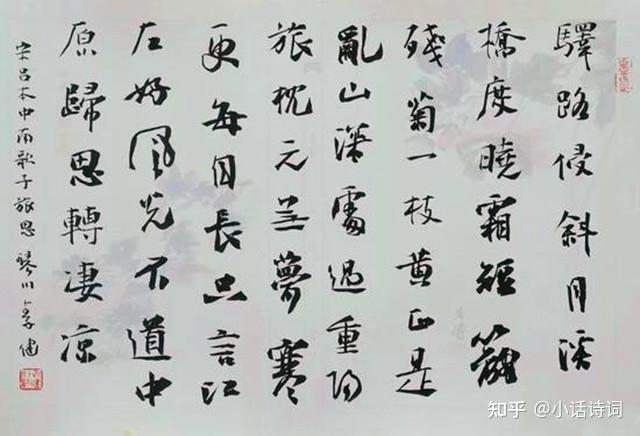 驛路侵斜月溪
橋度曉霜短籬
殘菊一枝黃正是
亂山深處過重陽
旅枕元無夢寒
更每自長只言江
左好風光不道中
原歸思轉凄凉
宋吕本中南歌子旅思 琴川李健
知乎 @小话诗词